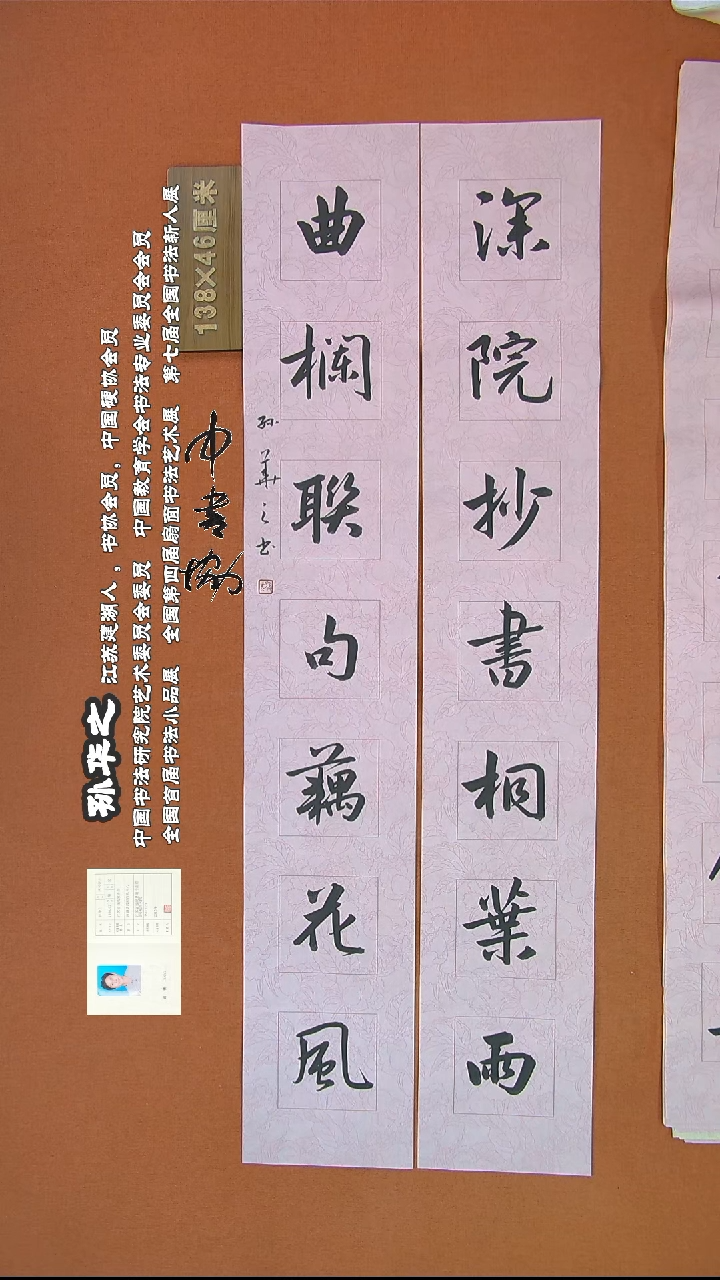 深院抄書桐葉雨
曲欄聯句藕花風
孙華之书
138×46厘米
中书协
孙华之
江苏建湖人，书协会员，中国硬协会员
中国书法研究院艺术委员会委员 中国教育学会书法专业委员会会员
全国首届书法小品展 全国第四届扇面书法艺术展 第七届全国书法新人展